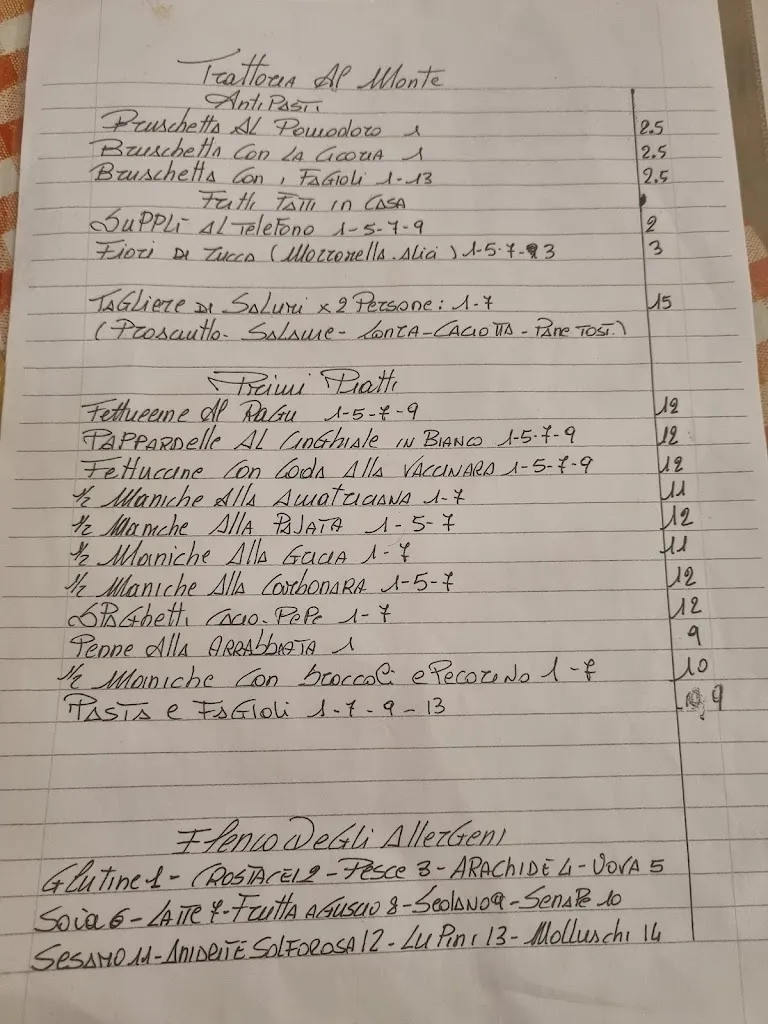 Trattoria Al Monte
Antipasti
Bruschetta Al Pomodoro 1 2.5
Bruschetta Con La Cicoria 1 2.5
Bruschetta Con i Fagioli 1-13 2.5
Fritti Fatti in Casa
Supplì Al Telefono 1-5-7-9 2
Fiori Di Zucca (Mozzarella. Alici) 1-5-7-3 3
Tagliere Di Salumi x 2 Persone: 1-7 15
(Prosciutto- Salame- Lonza-Caciotta-Pane Tost.)
Primi Piatti
Fettuccine Al Ragu 1-5-7-9 12
Pappardelle Al Cinghiale in Bianco 1-5-7-9 12
Fettuccine Con Coda Alla Vaccinara 1-5-7-9 12
1/2 Maniche Alla Amatriciana 1-7 11
1/2 Maniche Alla Pajata 1-5-7 12
1/2 Maniche Alla Gricia 1-7 11
1/2 Maniche Alla Carbonara 1-5-7 12
Spaghetti Cacio. Pepe 1-7 12
Penne Alla Arrabbiata 1 9
1/2 Maniche Con broccoli e Pecorino 1-7 10
Pasta e Fagioli 1-7-9-13 9
Elenco Degli Allergeni
Glutine 1- Crostacei 2-Pesce 3-Arachide 4-Uova 5
Soia 6-Latte 7-Frutta a guscio 8-Sedano 9-Senape 10
Sesamo 11-Anidrite Solforosa 12-Lupini 13-Molluschi 14